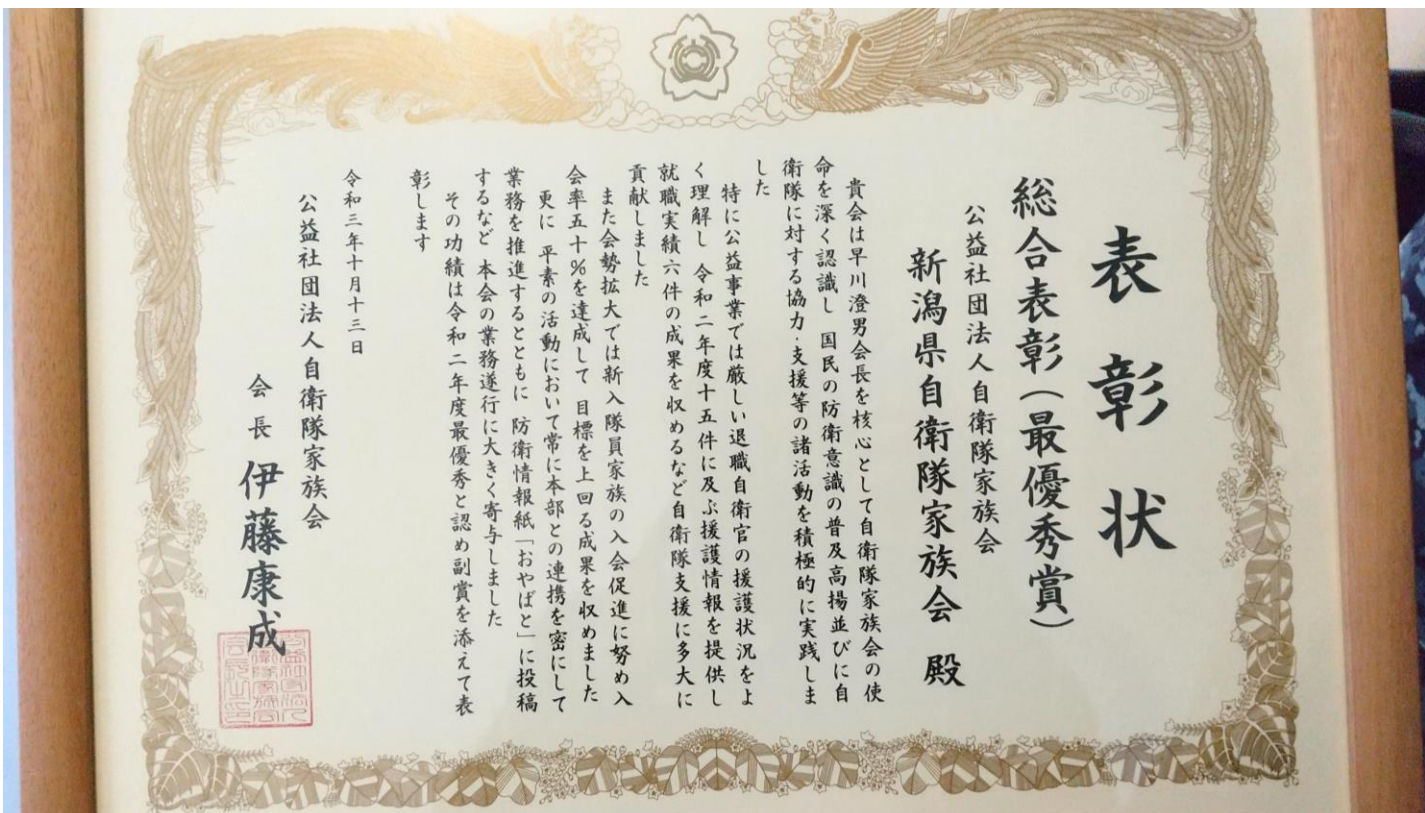 表彰状
総合表彰（最優秀賞）
公益社団法人自衛隊家族会
新潟県自衛隊家族会 殿
貴会は早川澄男会長を核心として自衛隊家族会の使
命を深く認識し 国民の防衛意識の普及高揚並びに自
衛隊に対する協力・支援等の諸活動を積極的に実践しま
した
特に公益事業では厳しい退職自衛官の援護状況をよ
く理解し 令和二年度十五件に及ぶ援護情報を提供し
就職実績六件の成果を収めるなど自衛隊支援に多大に
貢献しました
また会勢拡大では新入隊員家族の入会促進に努め入
会率五十％を達成して 目標を上回る成果を収めました
更に 平素の活動において常に本部との連携を密にして
業務を推進するとともに 防衛情報紙「おやばと」に投稿
するなど 本会の業務遂行に大きく寄与しました
その功績は令和二年度最優秀と認め副賞を添えて表
彰します
令和三年十月十三日
公益社団法人自衛隊家族会
会長 伊藤康成